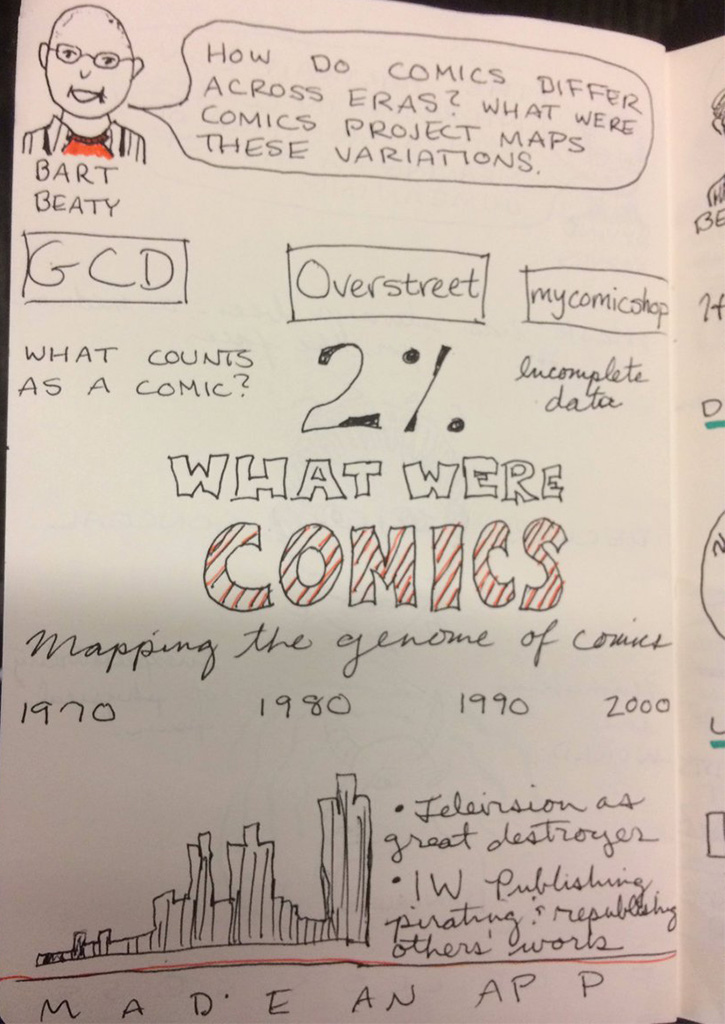 HOW DO COMICS DIFFER
ACROSS ERAS? WHAT WERE
COMICS PROJECT MAPS
THESE VARIATIONS.
BART
BEATY
GCD
Overstreet
mycomicshop
WHAT COUNTS
AS A COMIC?
2%
Incomplete
data
WHAT WERE
COMICS
Mapping the genome of comics
1970 1980 1990 2000
• Television as
great destroyer
• IW Publishing
pirating & republishing
others' works
MAD·E AN APP